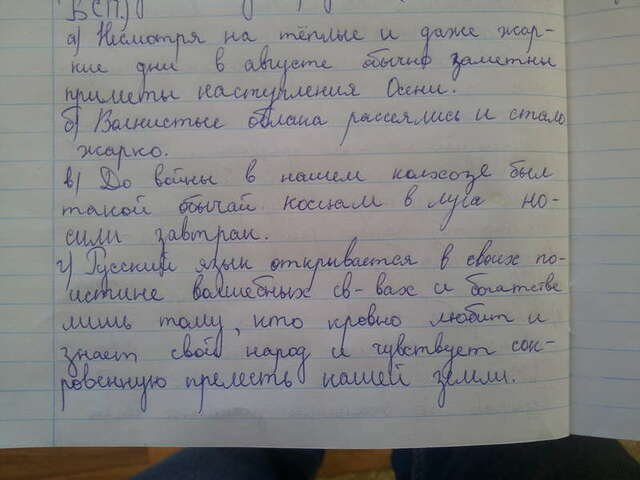 БСП.)
а) Несмотря на тёплые и даже жар-
кие дни в августе обычно заметны
приметы наступления Осени.
б) Волнистые облака рассеялись и стало
жарко.
в) До войны в нашем колхозе был
такой обычай косцам в луга но-
сили завтраки.
г) Русский язык открывается в своих по-
истине волшебных св-вах и богатстве
лишь тому, кто кровно любит и
знает свой народ и чувствует сок-
ровенную прелесть нашей земли.